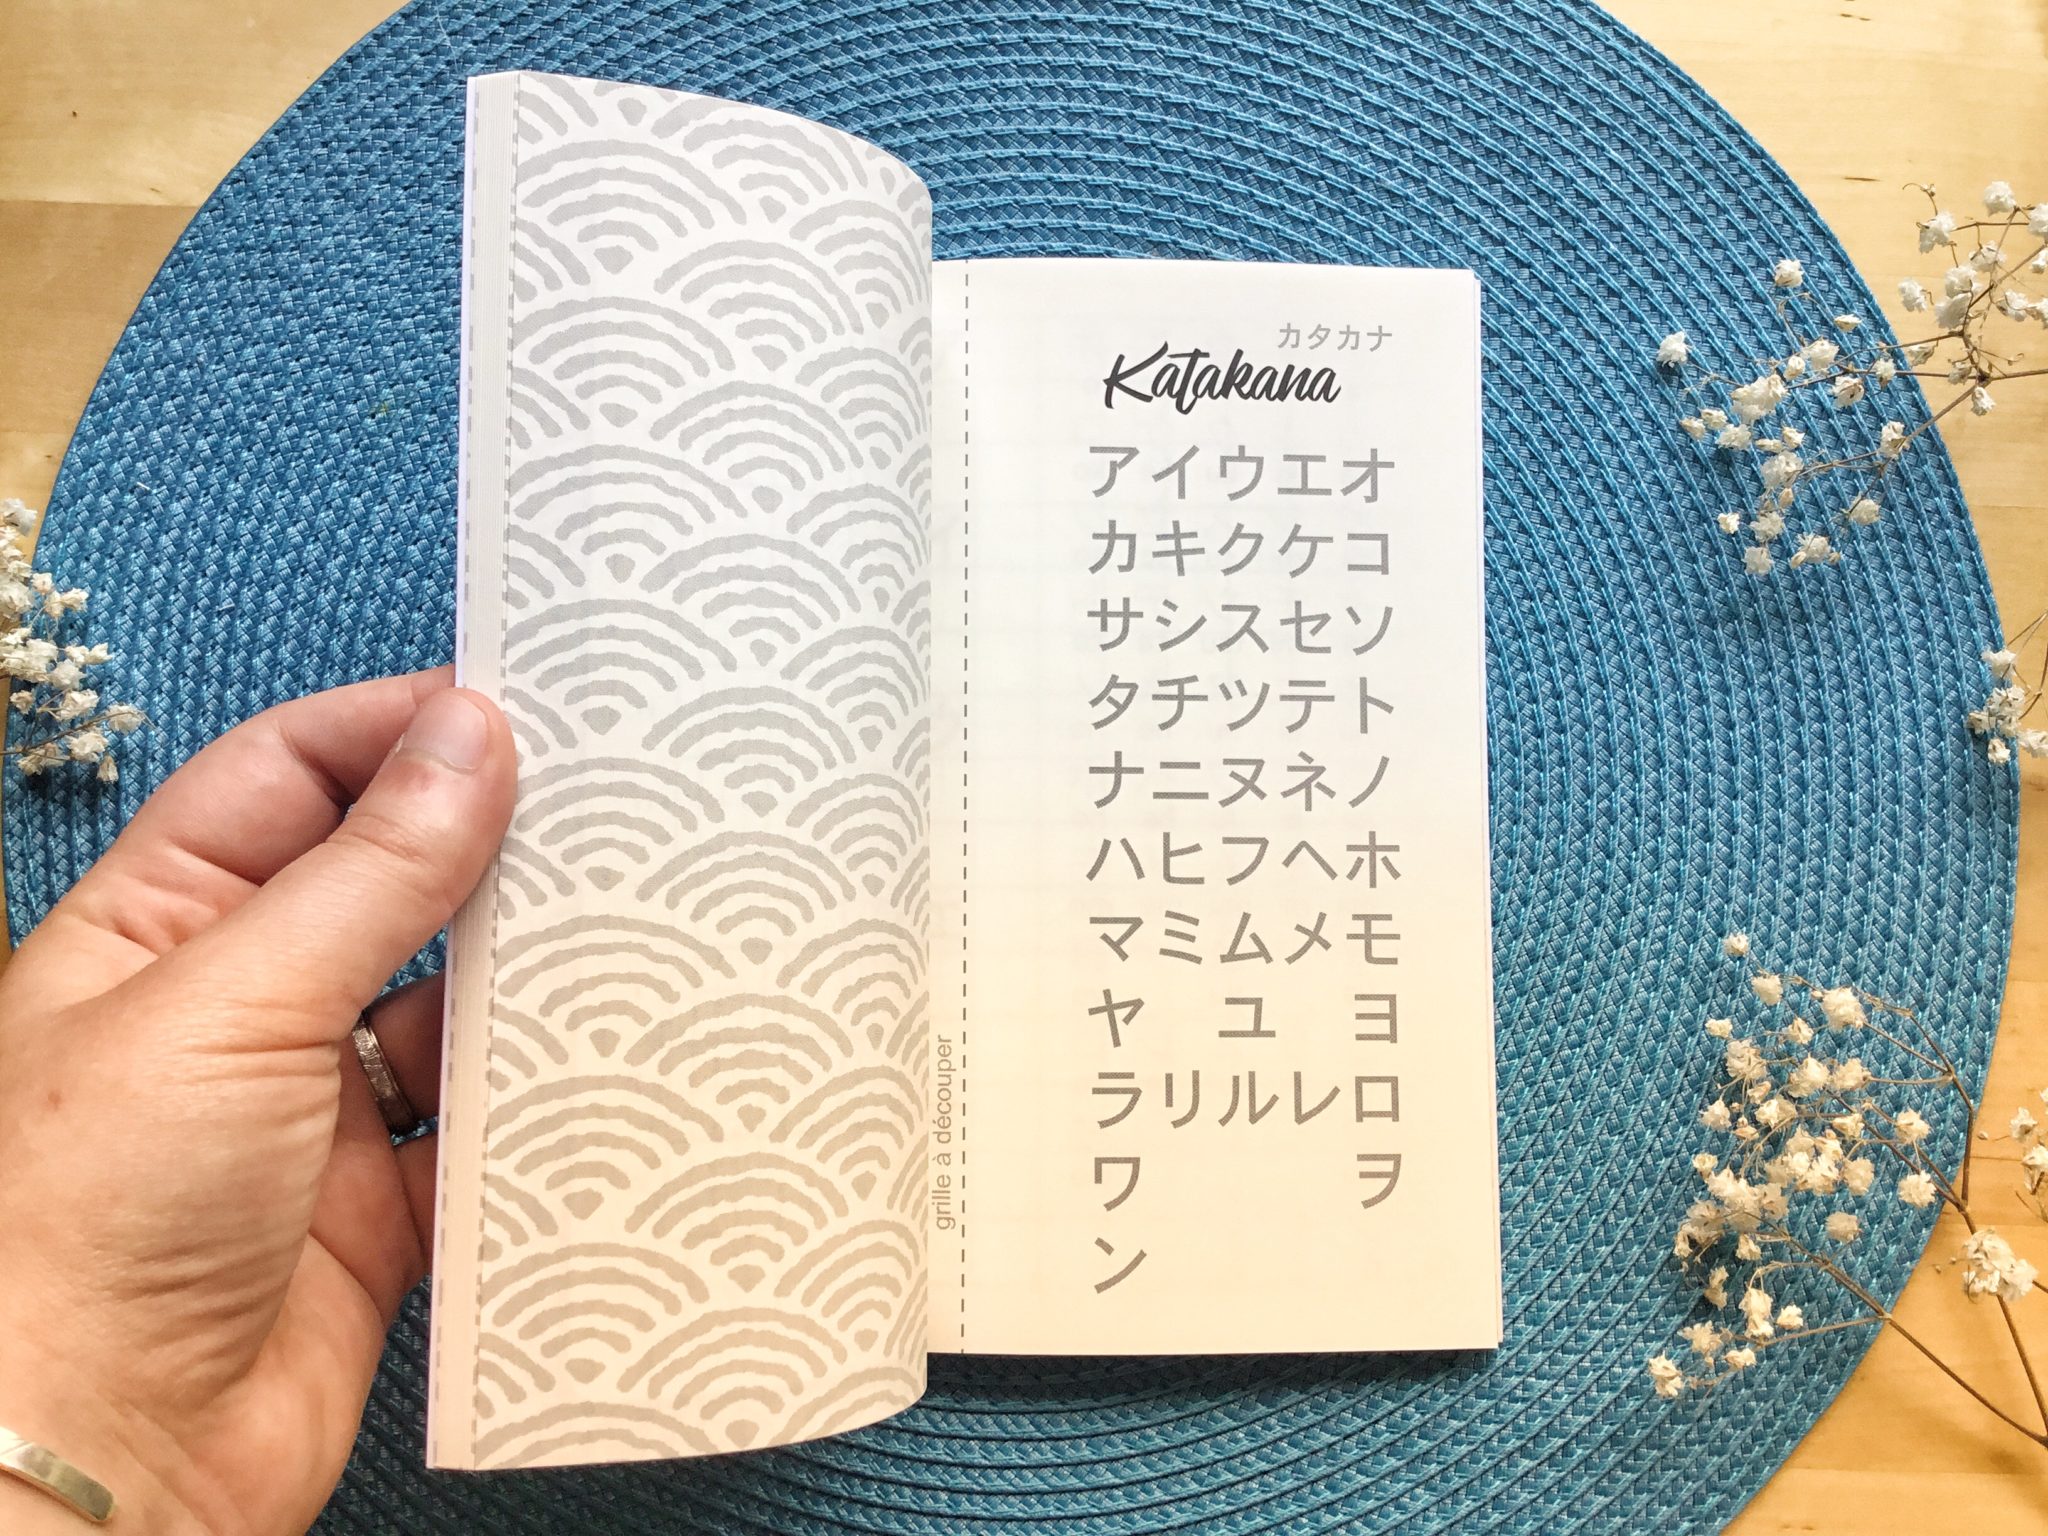 カタカナ
Katakana
アイウエオ
カキクケコ
サシスセソ
タチツテト
ナニヌネノ
ハヒフヘホ
マミムメモ
ヤ ユ ヨ
ラリルレロ
ワ ヲ
ン
grille à découper